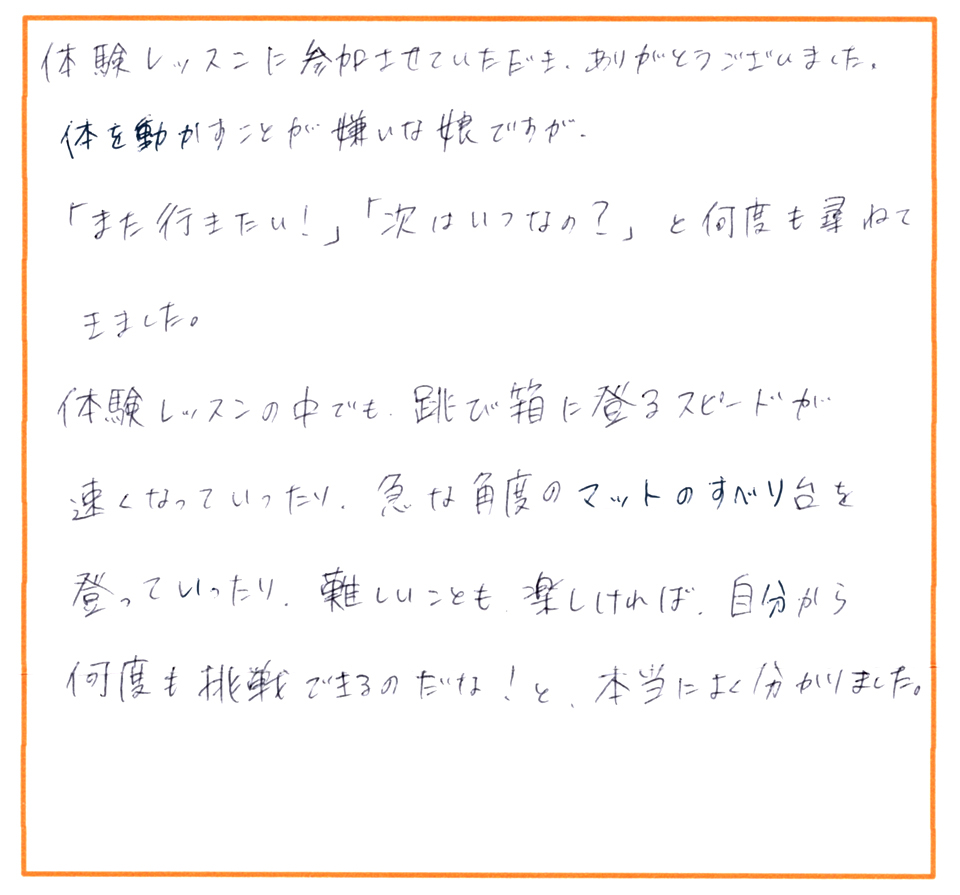 体験レッスンに参加させていただき、ありがとうございました。
体を動かすことが嫌いな娘ですが、
「また行きたい！」「次はいつなの？」と何度も尋ねて
きました。
体験レッスンの中でも、跳び箱に登るスピードが
速くなっていったり、急な角度のマットのすべり台を
登っていったり、難しいことも、楽しければ、自分から
何度も挑戦できるのだな！と、本当によく分かりました。